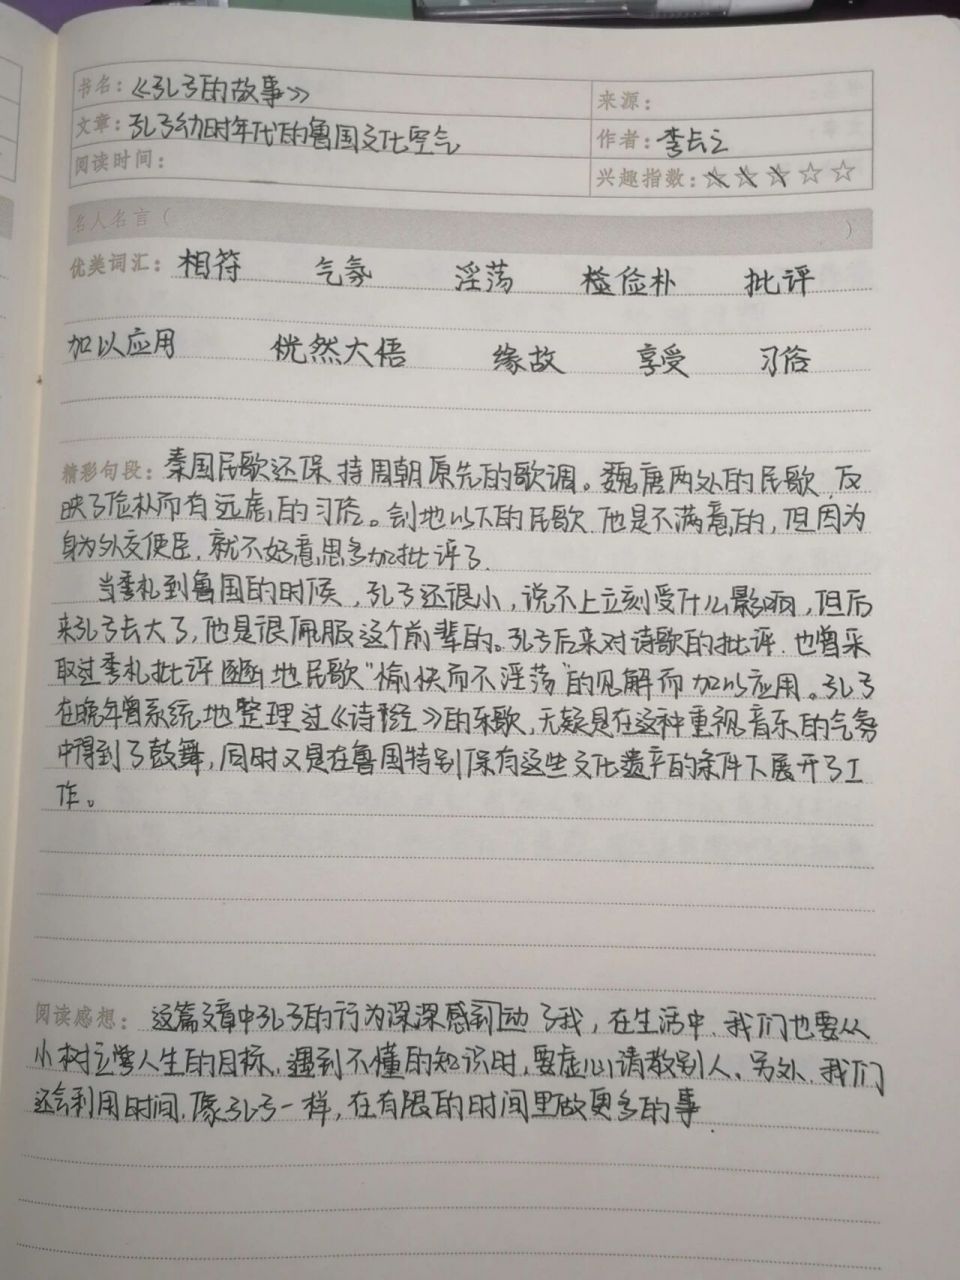 书名：《孔子的故事》
来源：
文章：孔子幼时年代的鲁国文化空气
作者：李长之
阅读时间：
兴趣指数：☆☆☆☆☆
名人名言（ ）
优美词汇：相符 气氛 淫荡 俭朴 批评
加以应用 恍然大悟 缘故 享受 习俗
精彩句段：秦国民歌还保持周朝原先的歌调。魏唐两处的民歌，反
映了俭朴而有远虑的习俗。郐地以下的民歌，他是不满意的，但因为
身为外交使臣，就不好意思多加批评了.
当季札到鲁国的时候，孔子还很小，说不上立刻受什么影响，但后
来孔子长大了，他是很佩服这个前辈的。孔子后来对诗歌的批评，也曾采
取过季札批评豳地民歌“愉快而不淫荡”的见解而加以应用。孔子
在晚年曾系统地整理过《诗经》的乐歌，无疑是在这种重视音乐的气氛
中得到了鼓舞，同时又是在鲁国特别保有这些文化遗产的条件下展开了工
作。
阅读感想：这篇文章中孔子的行为深深感动了我，在生活中，我们也要从
小树立人生的目标，遇到不懂的知识时，要虚心请教别人、另外，我们
还会利用时间，像孔子一样，在有限的时间里做更多的事.